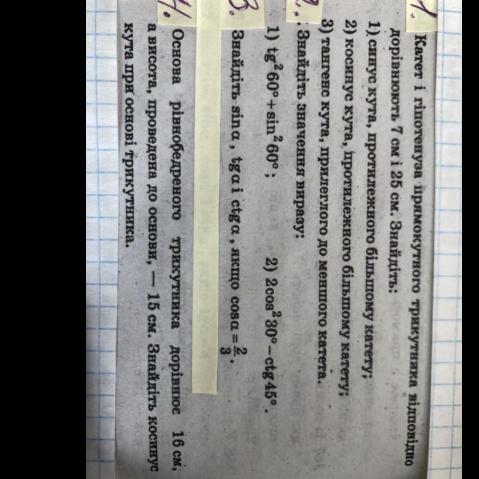 1. Катет і гіпотенуза прямокутного трикутника відповідно
дорівнюють 7 см і 25 см. Знайдіть:
1) синус кута, протилежного більшому катету;
2) косинус кута, протилежного більшому катету;
3) тангенс кута, прилеглого до меншого катета.
2. Знайдіть значення виразу:
1) tg²60°+sin²60°; 2) 2cos²30°−ctg45°.
3. Знайдіть sinα, tgα і ctgα, якщо cosα=2/3.
4. Основа рівнобедреного трикутника дорівнює 16 см,
а висота, проведена до основи, — 15 см. Знайдіть косинус
кута при основі трикутника.